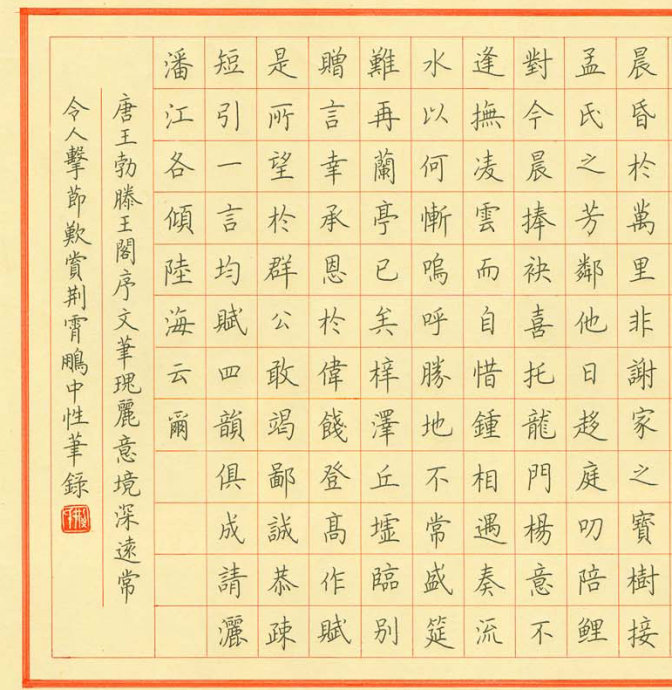 晨昏於萬里非謝家之寶樹接
孟氏之芳鄰他日趍庭叨陪鯉
對今晨捧袂喜托龍門楊意不
逢撫凌雲而自惜鍾相遇奏流
水以何慚嗚呼勝地不常盛筵
難再蘭亭已矣梓澤丘墟臨別
贈言幸承恩於偉餞登高作賦
是所望於群公敢竭鄙誠恭疎
短引一言均賦四韻俱成請灑
潘江各傾陸海云爾
唐王勃滕王閣序文筆瑰麗意境深遠常
令人擊節歎賞荆霄鵬中性筆錄